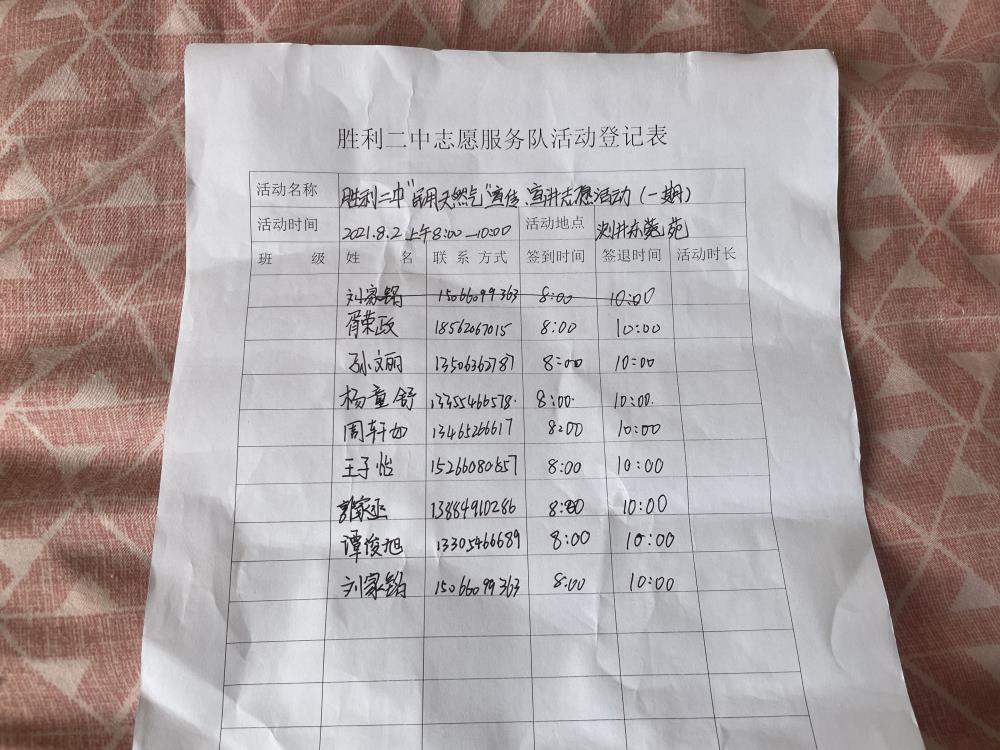 胜利二中志愿服务队活动登记表
活动名称 胜利二中"民用天然气"宣传、宣讲志愿活动(一期)
活动时间 2021.8.2 上午8:00—10:00 活动地点 浏井东苑
班 级 姓 名 联系方式 签到时间 签退时间 活动时长
刘家铭 15066099363 8:00 10:00
胥荣政 18562067015 8:00 10:00
孙文丽 13506362787 8:00 10:00
杨童舒 13455466578 8:00 10:00
周轩如 13465266617 8:00 10:00
王子怡 15266080657 8:00 10:00
家丞 13884910286 8:00 10:00
谭俊旭 13305466689 8:00 10:00
刘家铭 15066099363 8:00 10:00